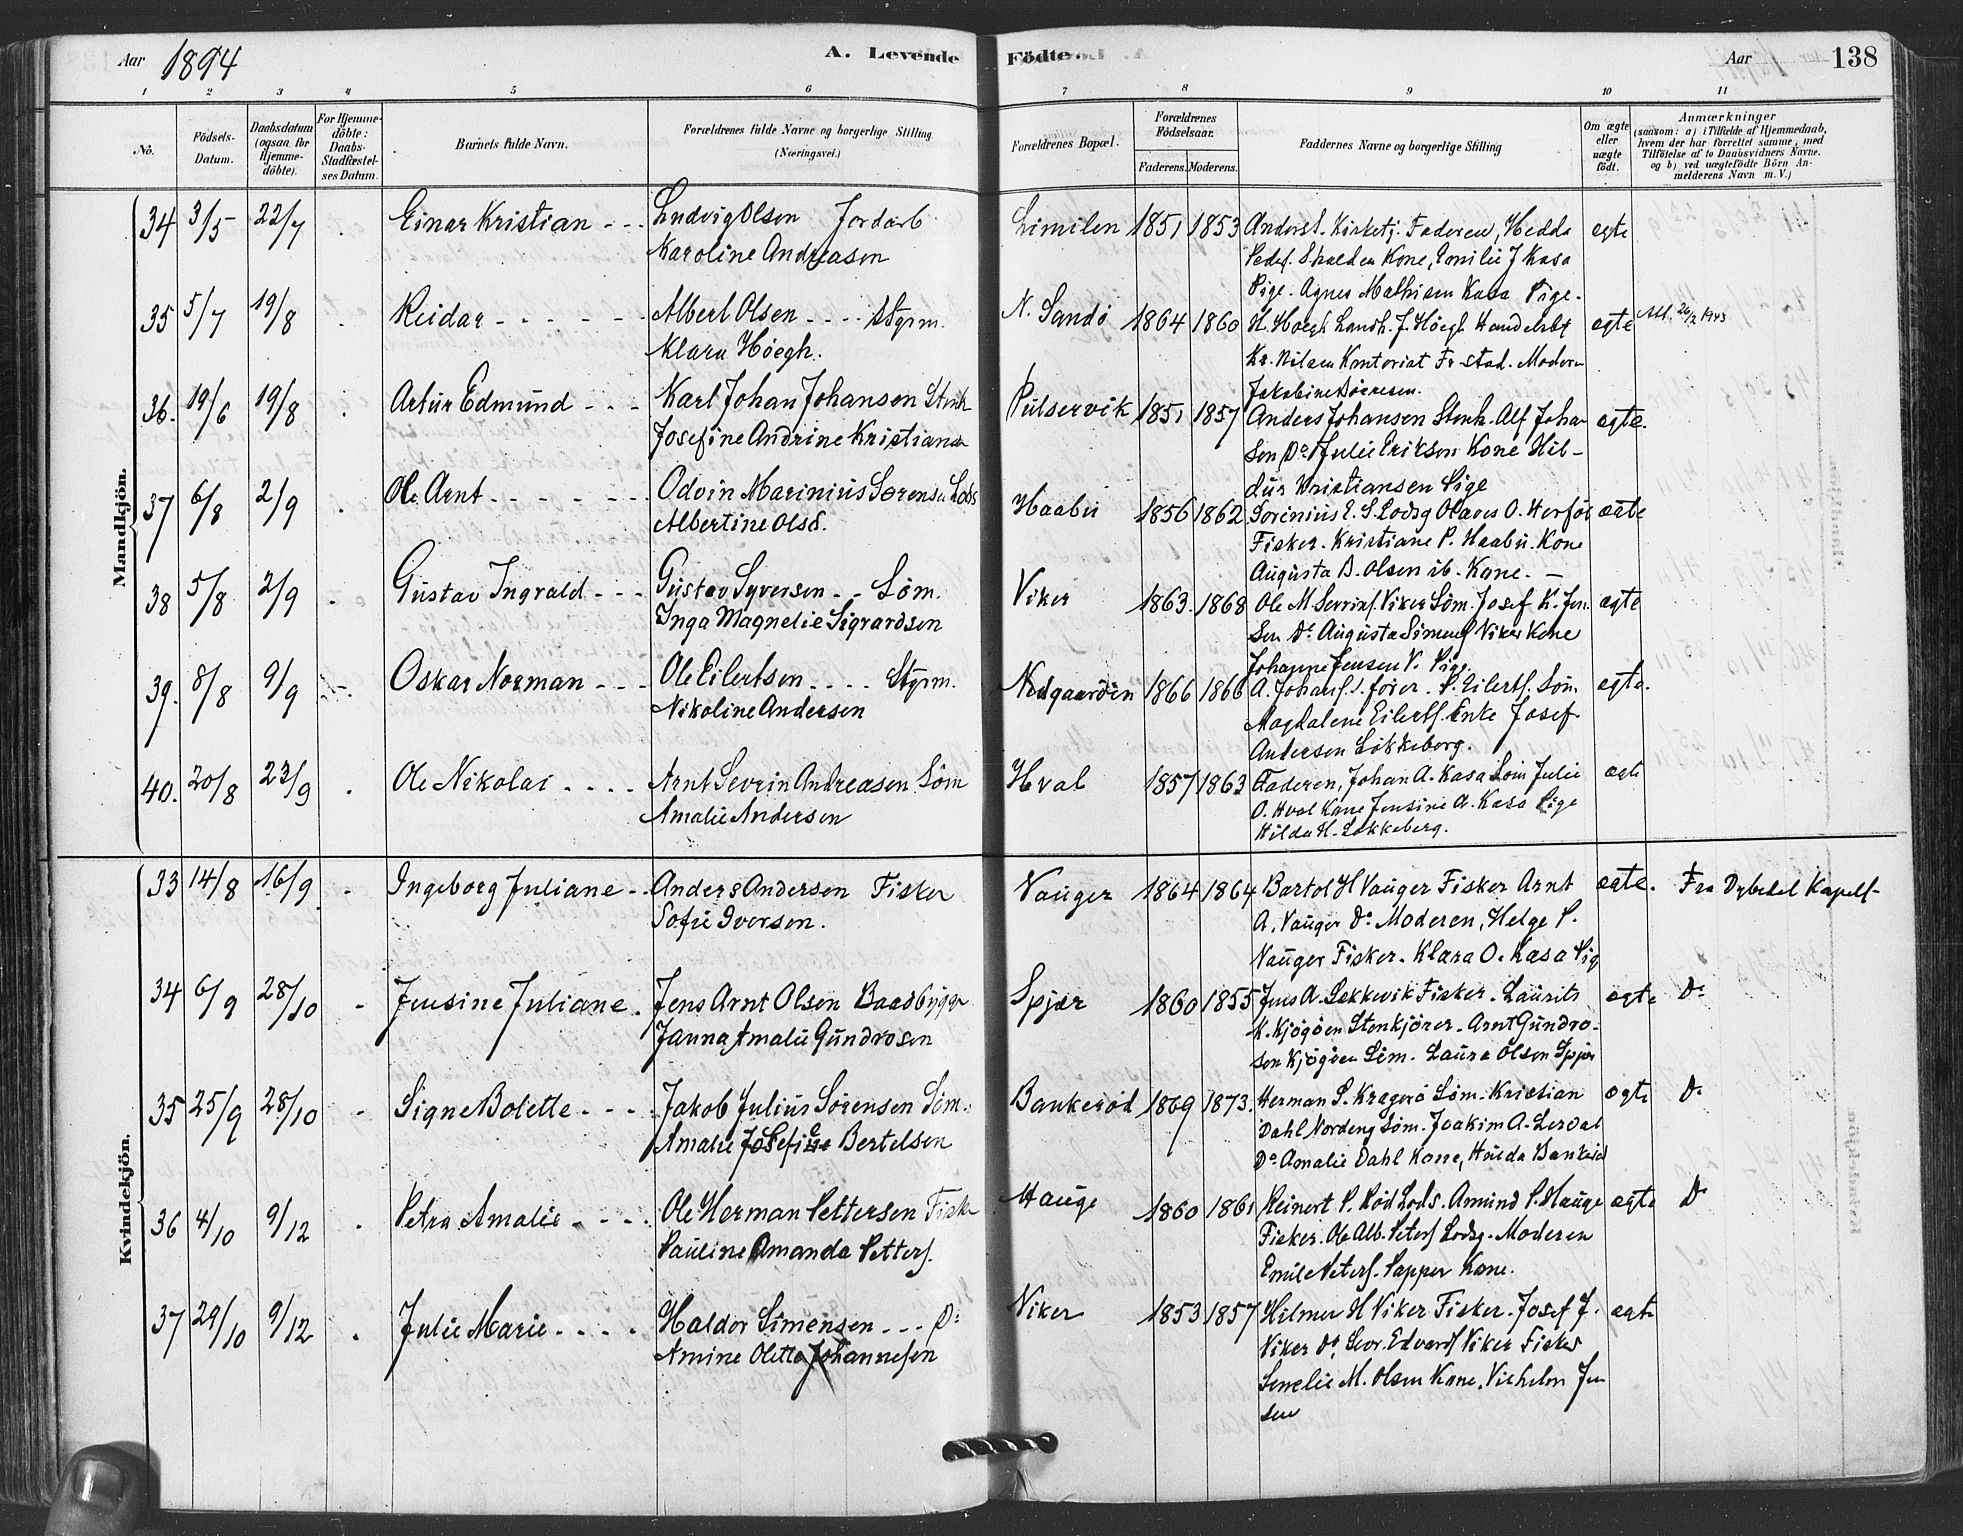 Aar 1894 A. Levende Födte. Aar 138
1 2 3 4 5 6 7 8 9 10 11
No.
Födsels-
Datum.
Daabsdatum
(ogsaa for
Hjemme-
döbte).
For Hjemme-
döbte:
Daabs-
Stadfæstel-
ses Datum.
Barnets fulde Navn.
Forældrenes fulde Navne og borgerlige Stilling
(Næringsvei.)
Forældrenes Bopæl.
Forældrenes
Födselsaar.
Faderens. Moderens.
Faddernes Navne og borgerlige Stilling
Om ægte
eller
uægte
födt.
Anmærkninger
(saasom: a) i Tilfælde af Hjemmedaab,
hvem der har forrettet samme, med
Tilföielse af to Daabsvidners Navne.
og b) ved uægtefödte Börn An-
melderens Navn m. V.)
Mandkjön.
34 3/5 22/7 Einar Kristian Ludvig Olsen Jordarb Limilen 1851 1853 Anders L. Kirketj. Faderen, Hedda ægte
Karoline Andreasen
Kone, Emilie J Kasa
Pige. Agnes Mathisen Kasa Pige.
35 5/7 19/8 Reidar Albert Olsen Styrm. N. Sandö 1864 1860 H. Høegh Landh. J. Høegh Handelsb ægte Att. 1943
Klara Høegh.
Kr. Nilsen Kontorist Fr-stad. Moderen
36. 19/6 19/8 Artur Edmund Karl Johan Johansen Stenh Pulservik 1851 1857 Anders Johansen Stenh. Alf Johan ægte.
Josefine Andrine Kristians
sen Do Julie Eriksen Kone Hil-
dur Kristiansen Pige
37 6/8 2/9 Ole Arnt Odvin Marinius Sørensen Lods Haabu 1856 1862 Sorinius E. S. Lodsg Olaves O. Herføl ægte
Albertine Olsd.
Fisker. Kristiane P. Haabu. Kone
Augusta B. Olsen ib. Kone.
38 5/8 2/9 Gustav Ingvald Gustav Syversen Søm. Viker 1863. 1868 Ole M. Sevrins. Viker Søm. Josef K. Jen ægte
Inga Magnelie Sigvardsen
sen Do Augusta Simens Viker Kone
Johanne Jensen V. Pige
39. 8/8 9/9 Oskar Norman Ole Eilertsen Styrm. Nedgaarden 1866 1866 A. Johans. P. Eilerts. Søm ægte.
Nikoline Andersen
Magdalene Eilerts. Enke Josef
Andersen Løkkeberg.
40. 20/8 23/9 Ole Nikolai Arnt Sevrin Andreasen Søm Hval 1857 1863 Faderen, Johan A. Kasa Søm Julie ægte
Amalie Andersen
O. Hval Kone Jensine A. Kasa Pige
Hilda H. Løkkeberg.
Kvindekjön.
33 14/8 16/9 Ingeborg Juliane Anders Andersen Fisker Vauger 1864 1864 Bartol H Vauger Fisker Arnt ægte. Fra Dybedal Kapel
Sofie Iversen.
A. Vauger Do Moderen, Helge P.
Vauger Fisker. Klara O. Kasa Pig
34 6/9 28/10 Jensine Juliane Jens Arnt Olsen Baadbygge Spjær 1860 1855 Jens A. Løkkevik Fisker. Laurits ægte Do
Janna Amalie Gundrosen
K. Kjøgöen Stenkjører. Arnt Gundro-
sen Kjøgöen Søm. Laura Olsen Spjær
35 25/9 28/10 Signe Bolette Jakob Julius Sörensen Søm. Bankerød 1869 1873. Herman S. Kragerö Søm. Kristian ægte Do
Amalie Josefine Bertelsen
Dahl Nordeng Søm. Joakim A. Lerdal
Do Amalie Dahl Kone, Hulda Bankerød
36 4/10 9/12 Petra Amalie Ole Herman Pettersen Fisker Hauge 1860 1861 Reinert P. Rød Lods. Amund P. Hauge ægte Do
Pauline Amanda Petters.
Fisker. Ole Alb. Peters Lodsg. Moderen
Emilie Peters. Papper Kone.
37 29/10 9/12 Julie Marie Haldor Simensen Do Viker 1853 1857 Hilmer H Viker Fisker. Josef J. ægte
Amine Olette Johannesen
Viker Do, Sevr. Edvards Viker Fisker
M. Olsen Kone, Vilhelm Jen
sen